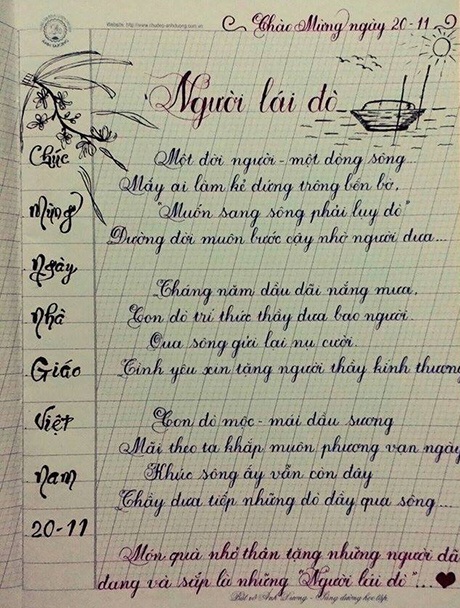 Website: http://www.chudep-anhduong.com.vn
Chào Mừng ngày 20-11
Người lái đò
Chúc
Mừng
Ngày
Nhà
Giáo
Việt
Nam
20-11
Một đời người - một dòng sông...
Mấy ai làm kẻ đứng trông bến bờ,
"Muốn sang sông phải lụy đò"
Đường đời muôn bước cậy nhờ người đưa...
Tháng năm dầu dãi nắng mưa,
Con đò trí thức thầy đưa bao người.
Qua sông gửi lại nụ cười
Tình yêu xin tặng người thầy kính thương
Con đò mộc - mái đầu sương
Mãi theo ta khắp muôn phương vạn ngày
Khúc sông ấy vẫn còn đây
Thầy đưa tiếp những đò đầy qua sông...
Món quà nhỏ thân tặng những người đã
đang và sắp là những "Người lái đò"...
Bút vở Ánh Dương - Sáng đường học tập